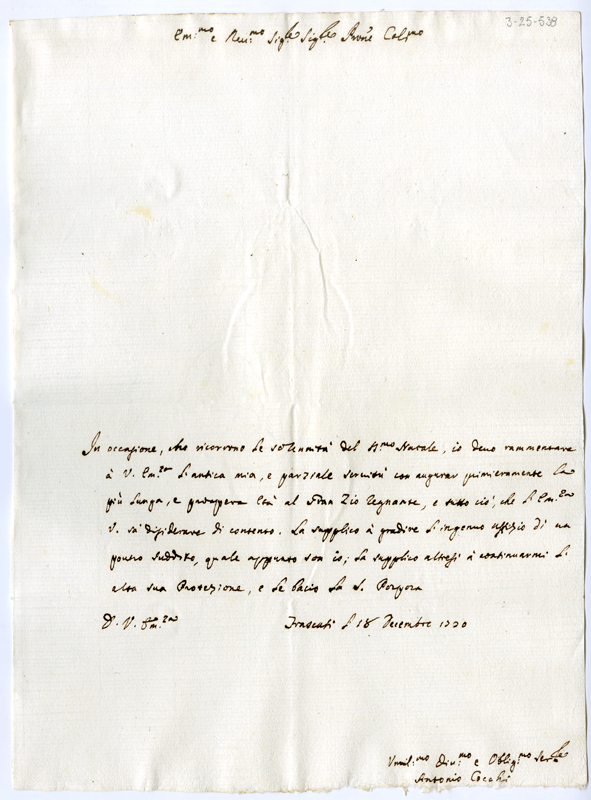 3-25-538
Em:mo e Reu:mo Sig:re Sig:re Prõne Col:mo
In occasione, che ricorrono le solennità del S:mo Natale, io deuo rammentare
à V. Em:za l'antica mia, e parziale seruitù con augurar primieramente la
più lunga, e prospera Età al Gran Zio Regnante, e tutto ciò, che l'Em:za
V. sà disiderare di contento. La supplico à gradire l'ingenuo uffizio di un
pouero suddito, quale appunto son io; La supplico altresì à continuarmi l'
alta sua Protezione, e le bacio la S. Porpora
D. V. Em:za Frascati li 18 Decembre 1770
Vmil:mo Diu:mo e Oblig:mo Ser:re
Antonio Cocchi